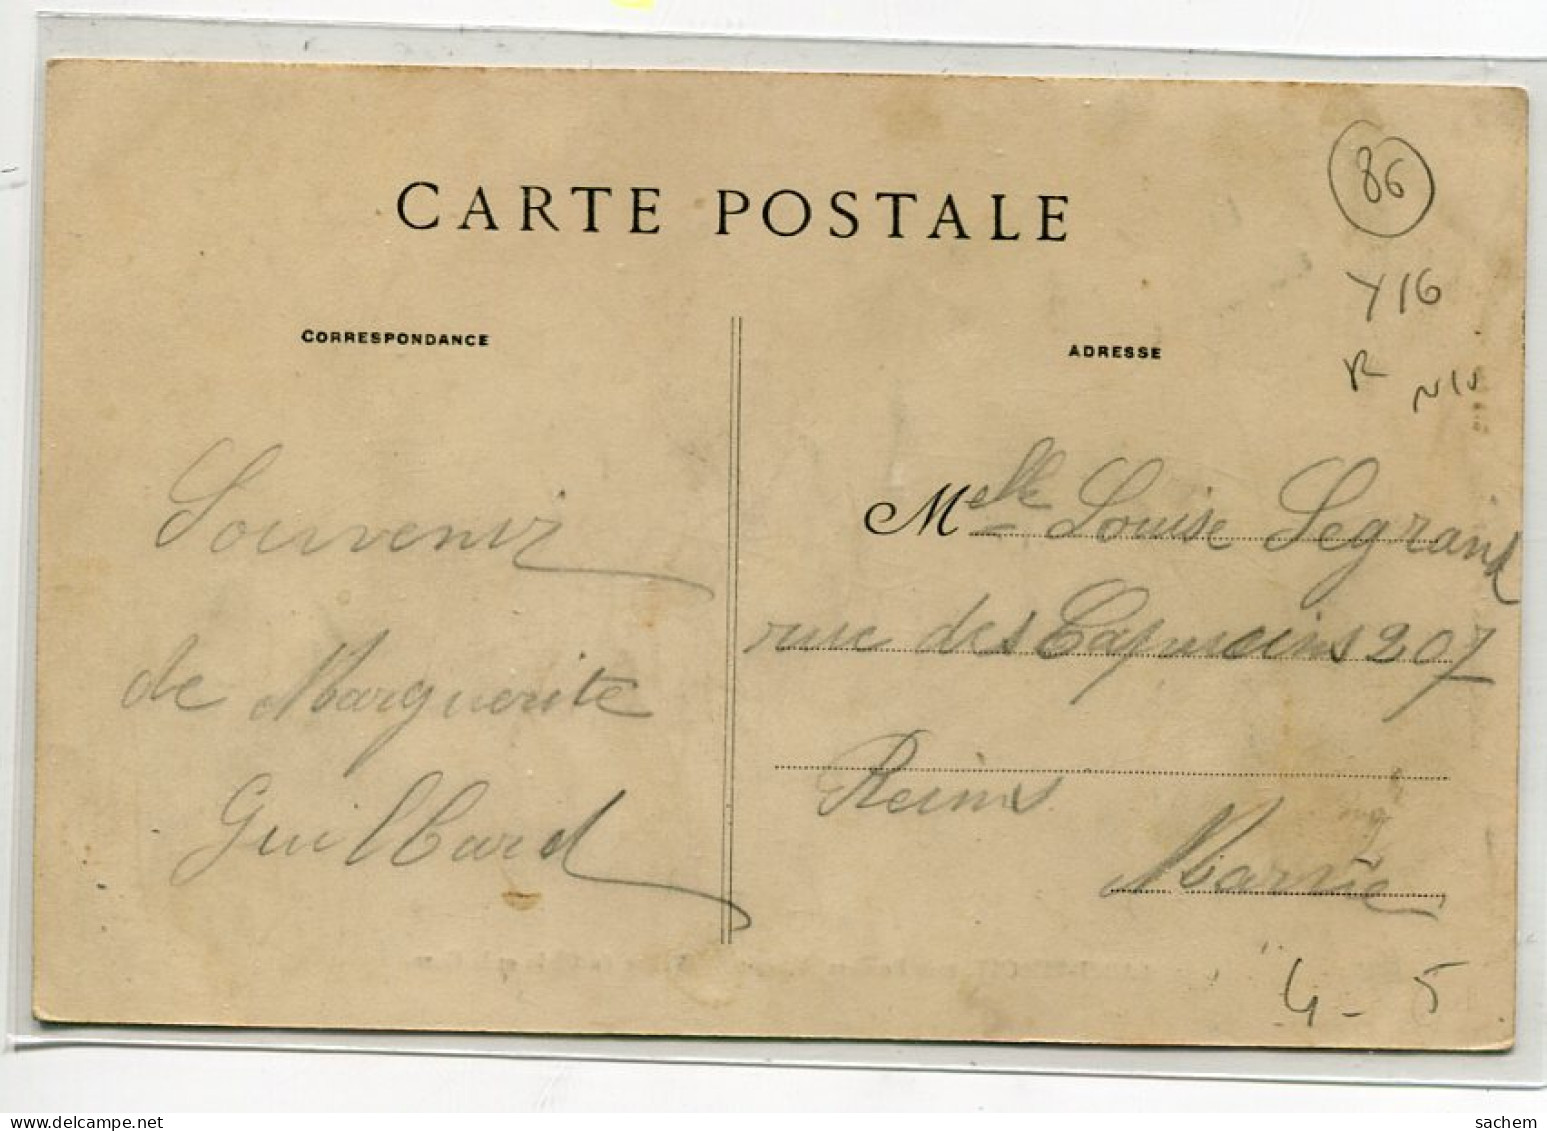 CARTE POSTALE
86
Y16
R
N15
CORRESPONDANCE
ADRESSE
Souvenir
de Marguerite
Guilbard
Melle Louise Legrand
rue des Capucins 207
Reims
Marne
4-5
www.delcampe.net
sachem